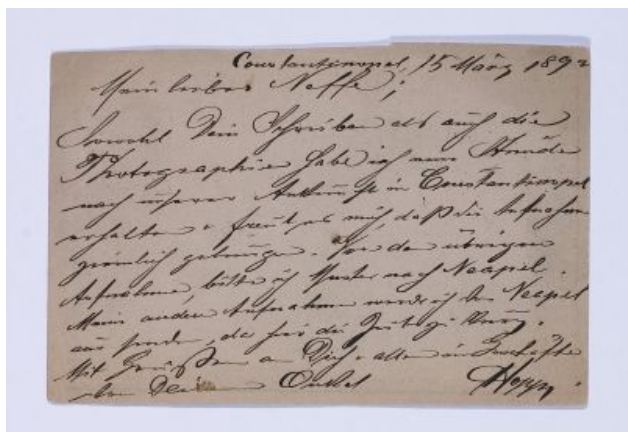 Constantinopel, 15 März 1892
Mein lieber Neffe;
Sowohl Dein Schreiben als auch die
Photographie habe ich eine Stunde
nach unserer Ankunft in Constantinopel
erhalten & freut es mich, daß die Aufnahmen
ziemlich gelungen. Von den übrigen
Aufnahmen, bitte ich Muster nach Neapel.
Meine anderen Aufnahmen werde ich von Neapel
aus senden, da hier die Zeit zu kurz.
Mit Grüßen an Dich & alle im Geschäfte
Dein Onkel